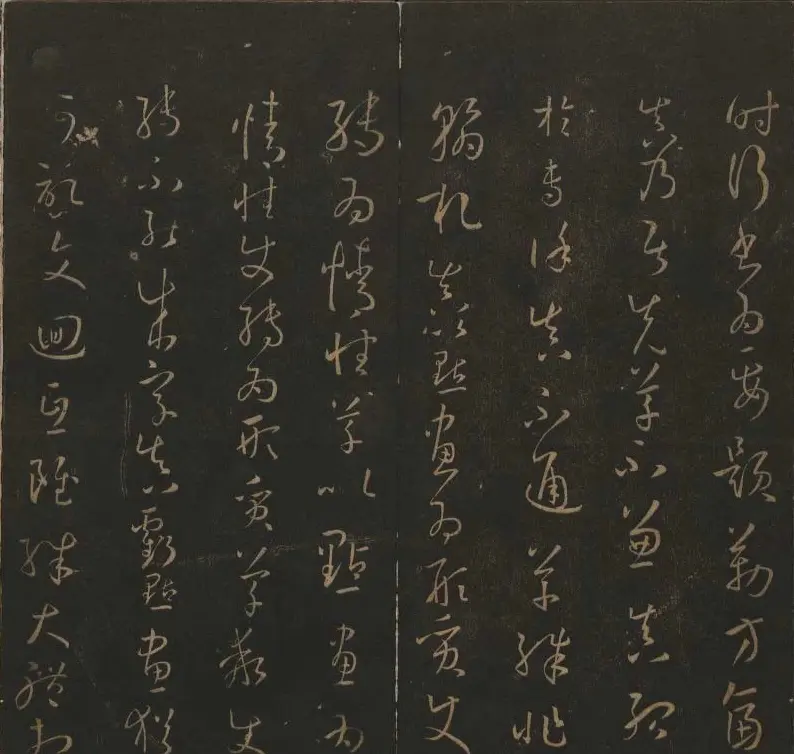 時行書為要題勒方畐
真乃居先草不兼真殆
於專謹真不通草殊非
翰札真以點畫為形質使
轉為情性草以點畫為
情性使轉為形質草乖使
轉不能成字真虧點畫猶
可記文迴互雖殊大體相